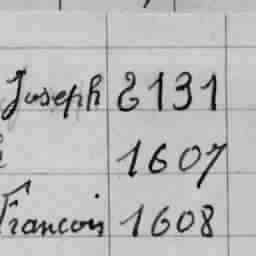 Joseph 2131
1607
Francois 1608